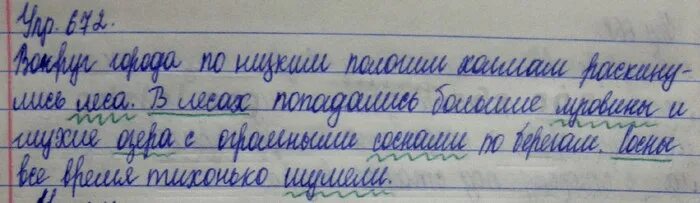 Упр. 672.
Вокруг города по низким пологим холмам раскину-
лись леса. В лесах попадались большие луговины и
глухие озера с огромными соснами по берегам. Сосны
все время тихонько шумели.